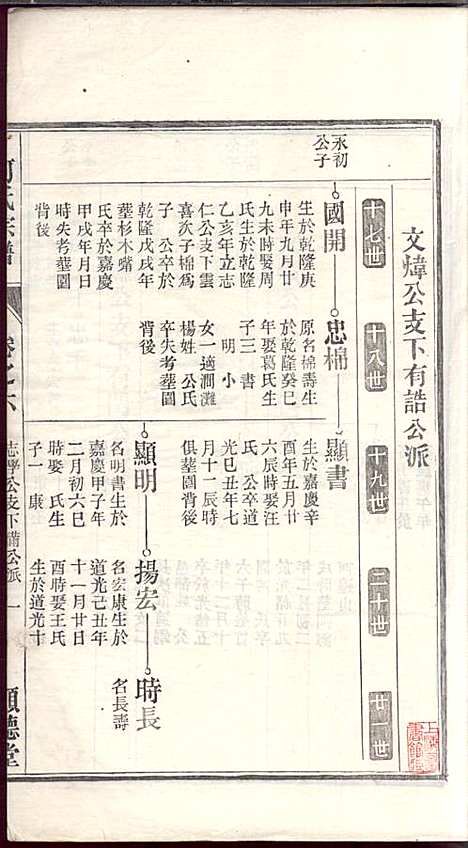 文煒公支下有誥公派
十七世
十八世
十九世
二十世
廿一世
永初
公子
國開
生於乾隆庚
申年九月廿
九未時娶周
氏生於乾隆
乙亥年立志
仁公支下雲
喜次子棉為
子 公卒於
乾隆戊戌年
葬杉木嘴
氏卒於嘉慶
甲戌年月日
時失考葬園
背後
忠棉
原名棉壽生
於乾隆癸巳
年娶葛氏生
子三 書
明 小
女一適澗灘
楊姓 公氏
卒失考葬園
背後
顯書
生於嘉慶辛
酉年五月廿
六辰時娶汪
氏 公卒道
光巳丑年七
月十一辰時
俱葬園背後
顯明
名明書生於
嘉慶甲子年
二月初六巳
時娶 氏生
子一 康
揚宏
名宏康生於
道光己丑年
十一月廿日
酉時娶王氏
生於道光十
時長
名長壽
何氏宗譜
卷之六
志學公支下備公派 一
順德堂